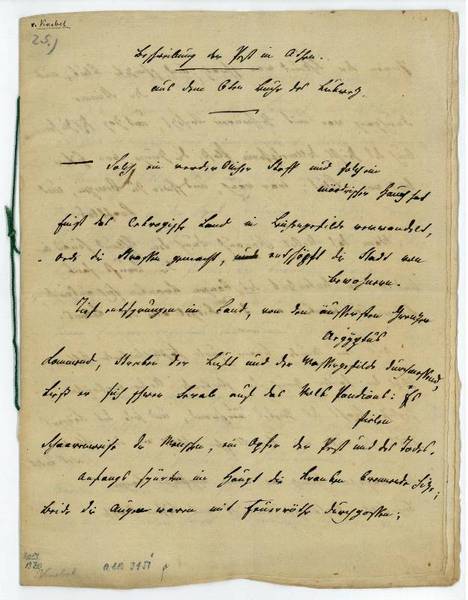 v. Knebel
25.)
Beschreibung der Pest in Athen.
aus dem 6ten Buche des Lukrez.
— Solch ein verderblicher Stoff und solch ein
mördrischer Hauch hat
einst das Cekropische Land in Leichengefilde verwandelt,
öde die Strassen gemacht, und entschöpft die Stadt von
Bewohnern.
Tief entsprungen im Land, von den äussersten Grenzen
Aegyptus
kommend, Strecken der Luft und der Wassergefilde durchmessend,
ließ er sich schwer herab auf das Volk Pandions: Es
fielen
schaarenweise die Menschen, ein Opfer der Pest und des Todes.
Anfangs spürten im Haupt die Kranken brennende Hitze;
beide die Augen waren mit Feuerröthe durchgossen;